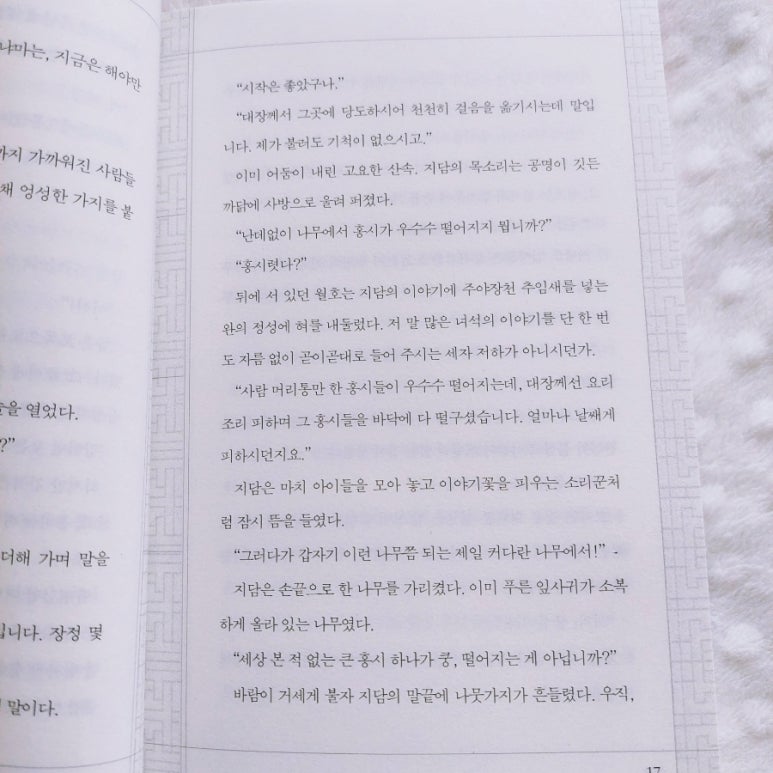 나마는, 지금은 해야만
까지 가까워진 사람들
채 엉성한 가지를 붙
을 열었다.
?”
더해 가며 말을
입니다. 장정 몇
말이다.
“시작은 좋았구나.”
“대장께서 그곳에 당도하시어 천천히 걸음을 옮기시는데 말입
니다. 제가 불러도 기척이 없으시고.”
이미 어둠이 내린 고요한 산속. 지담의 목소리는 공명이 깃든
까닭에 사방으로 울려 퍼졌다.
“난데없이 나무에서 홍시가 우수수 떨어지지 뭡니까?”
“홍시렷다?”
뒤에 서 있던 월호는 지담의 이야기에 주야장천 추임새를 넣는
완의 정성에 혀를 내둘렀다. 저 말 많은 녀석의 이야기를 단 한 번
도 자름 없이 곧이곧대로 들어 주시는 세자 저하가 아니시던가.
“사람 머리통만 한 홍시들이 우수수 떨어지는데, 대장께선 요리
조리 피하며 그 홍시들을 바닥에 다 떨구셨습니다. 얼마나 날쌔게
피하시던지요.”
지담은 마치 아이들을 모아 놓고 이야기꽃을 피우는 소리꾼처
럼 잠시 뜸을 들였다.
“그러다가 갑자기 이런 나무쯤 되는 제일 커다란 나무에서!”
지담은 손끝으로 한 나무를 가리켰다. 이미 푸른 잎사귀가 소복
하게 올라 있는 나무였다.
“세상 본 적 없는 큰 홍시 하나가 쿵, 떨어지는 게 아닙니까?”
바람이 거세게 불자 지담의 말끝에 나뭇가지가 흔들렸다. 우직,
17